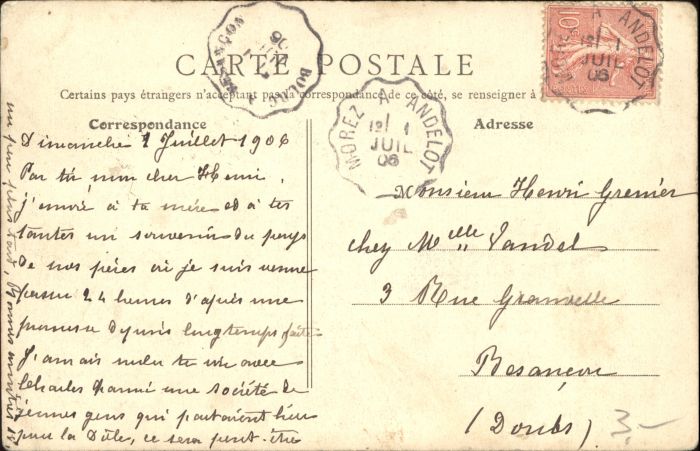 CARTE POSTALE
Certains pays étrangers n'acceptant pas la correspondance de ce côté, se renseigner à
Correspondance
Adresse
MOREZ A ANDELOT
12 1
JUIL
06
MOREZ A ANDELOT
12 1
JUIL
06
BESANÇON A
10
Dimanche 1 Juillet 1906
Par toi mon cher Henri,
j'envoie à ta mère et à tes
tantes un souvenir du pays
de nos pères où je suis venue
passer 24 heures d'après une
promesse depuis longtemps faite
J'aurais voulu te voir avec
Charles parmi une société de
jeunes gens qui partaient hier
pour la Dôle, ce sera peut-être
un peu plus tard,
Monsieur Henri Grenier
chez Melle Vandel
3 Rue Granvelle
Besançon
(Doubs)
3,-